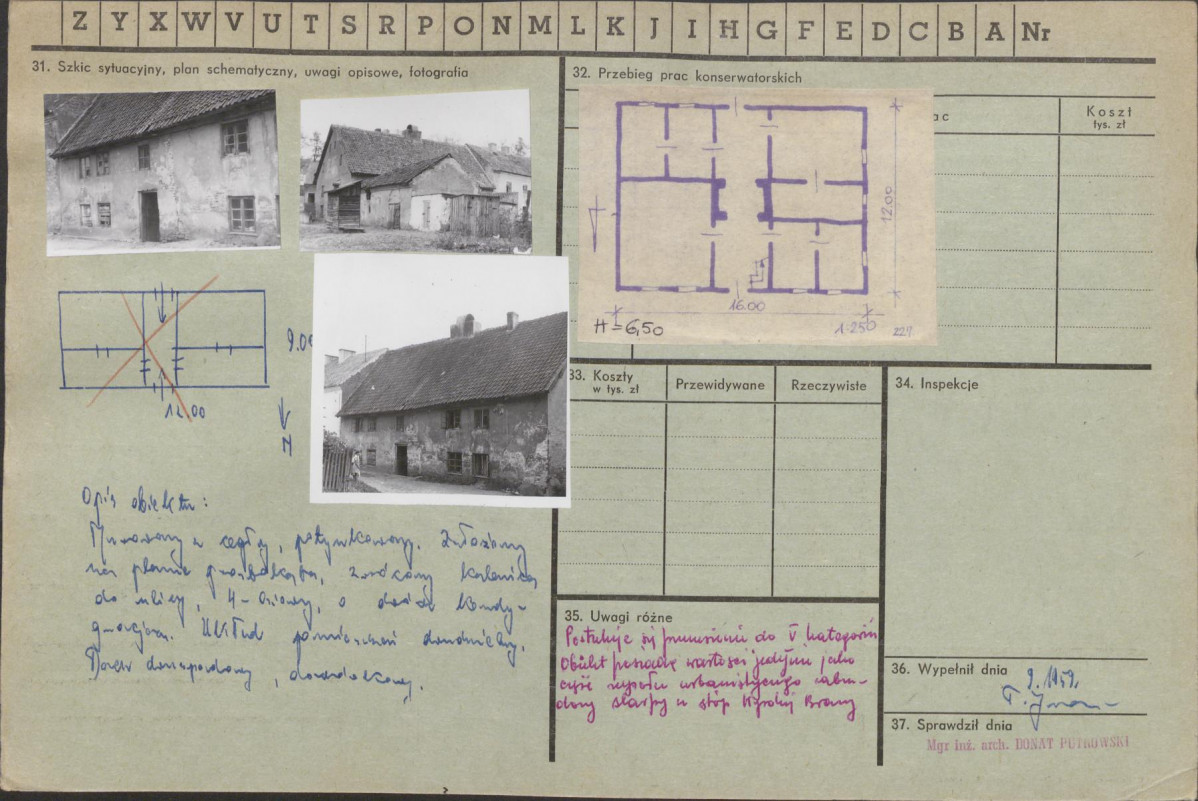 Z Y X W V U T S R P O N M L K J I H G F E D C B A Nr
31. Szkic sytuacyjny, plan schematyczny, uwagi opisowe, fotografia
9.00
12.00
N
Opis obiektu:
Murowany z cegły, potynkowany. Założony
na planie prostokąta, zwrócony kalenicą
do ulicy, 4-osiowy, o dwóch kondy-
gnacjach. Układ pomieszczeń
Dach dwuspadowy,
32. Przebieg prac konserwatorskich
ac
Koszt
tys. zł
12.00
16.00
H=6,50
1:250
229
33. Koszty
w tys. zł
Przewidywane
Rzeczywiste
34. Inspekcje
35. Uwagi różne
Postuluje się przeniesienie do V kategorii
Obiekt posiada wartości jedynie jako
część zespołu urbanistycznego zabu-
dowy skarpy u stóp Wysokiej Bramy
36. Wypełnił dnia
9.1959.
37. Sprawdził dnia
Mgr inż. arch. DONAT PUTKOWSKI